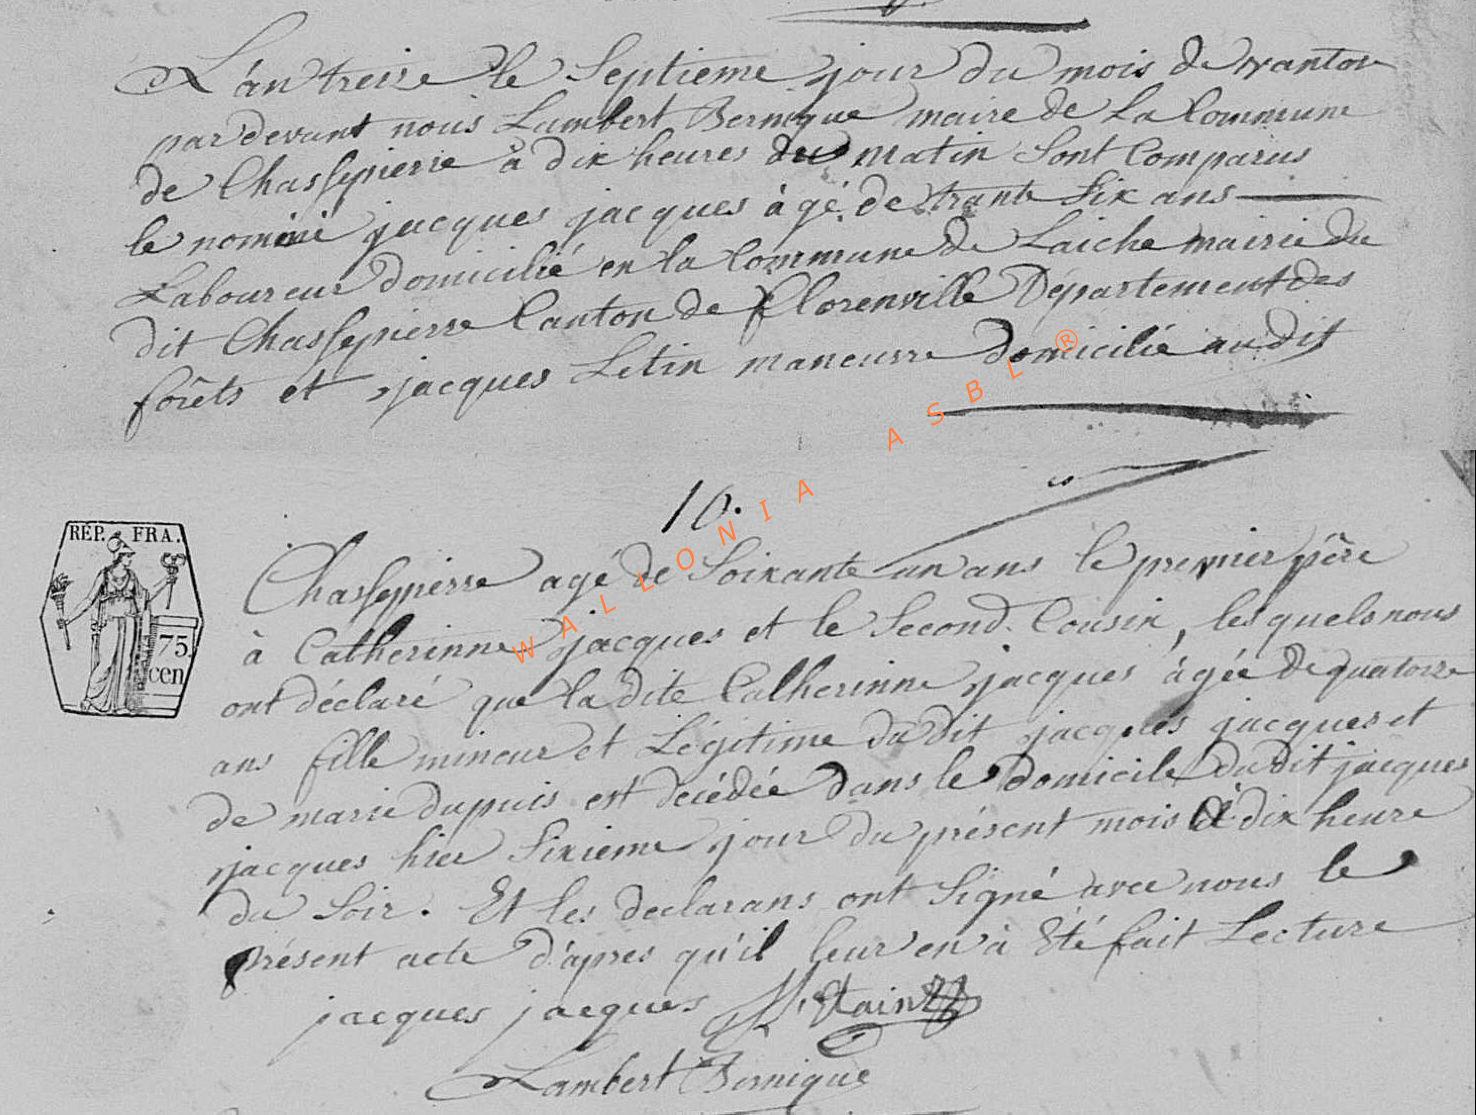 L'an treize le Septieme jour du mois de vantos
par devant nous Lambert Bernique maire de La Commune
de Chassepierre à dix heures du matin Sont Comparus
le nommé jacques jacques àgé de trante Six ans
Laboureur domicilié en la Commune de Laiche mairie du
dit Chassepierre Canton de florenville Département des
forêts et jacques Letin maneuvre domicilié audit
10.
Chassepierre agé de Soixante un ans le premier père
à Catherinne jacques et le Second Cousin, les quels nous
ont déclaré que la dite Catherinne jacques àgée de quatorze
ans fille mineur et Légitime du dit jacques jacques et
de marie dupuis est décédée dans le domicile du dit jacques
jacques hier Sixieme jour du présent mois à dix heure
du Soir. Et les declarans ont Signé avec nous le
présent acte d'apres qu'il leur en à Été fait Lecture
jacques jacques
Lambert Bernique
REP. FRA.
75
cen
WALLONIA ASBL ®